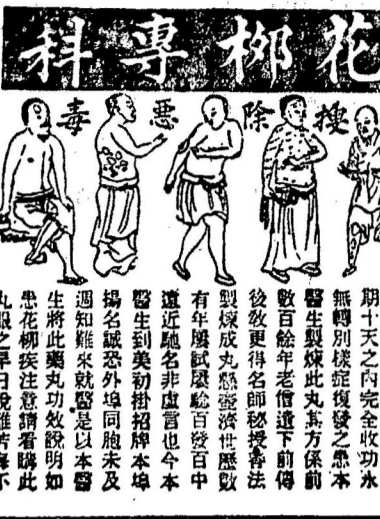 花柳專科
搜除惡毒
期十天之內完全收功永
無轉別樣症復發之患本
醫生製煉此丸方係前
數百餘年老僧遺下前傳
後效更得名師秘授法
製煉成丸懸壺濟世歷數
有年屢試屢驗百發百中
遠近馳名非虛言也今本
醫生到美初掛招牌本埠
揚名誠恐外埠同胞未及
週知難來就醫是以本醫
生將此藥丸功效說明如
患花柳疾注意請看購此
丸服之早日脫離苦海不